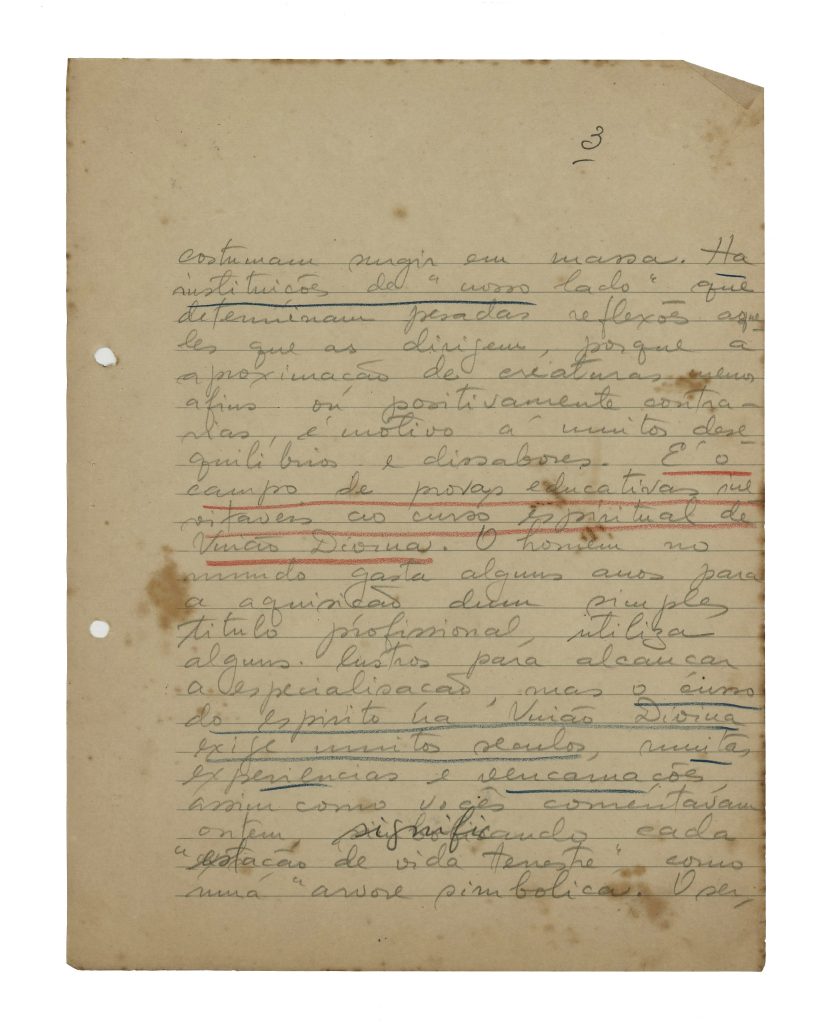 3
costumam surgir em massa. Ha
instituições do "nosso lado" que
determinam pesadas reflexões aque
les que as dirigem, porque a
aproximação de creaturas menos
afins ou positivamente contra-
rias, é motivo a muitos dese
quilibrios e dissabores. E' o
campo de provas educativas ine
vitaveis ao curso espiritual de
União Divina. O homem no
mundo gasta alguns anos para
a aquisicão dum simples
titulo profissional, utiliza
alguns lustros para alcancar
a especialisacão, mas o curso
do espirito na União Divina
exige muitos seculos, muitas
experiencias e reencarnações,
assim como vocês comentavam
ontem, significando cada
"estação de vida terrestre" como
numa "arvore simbolica. O ser,